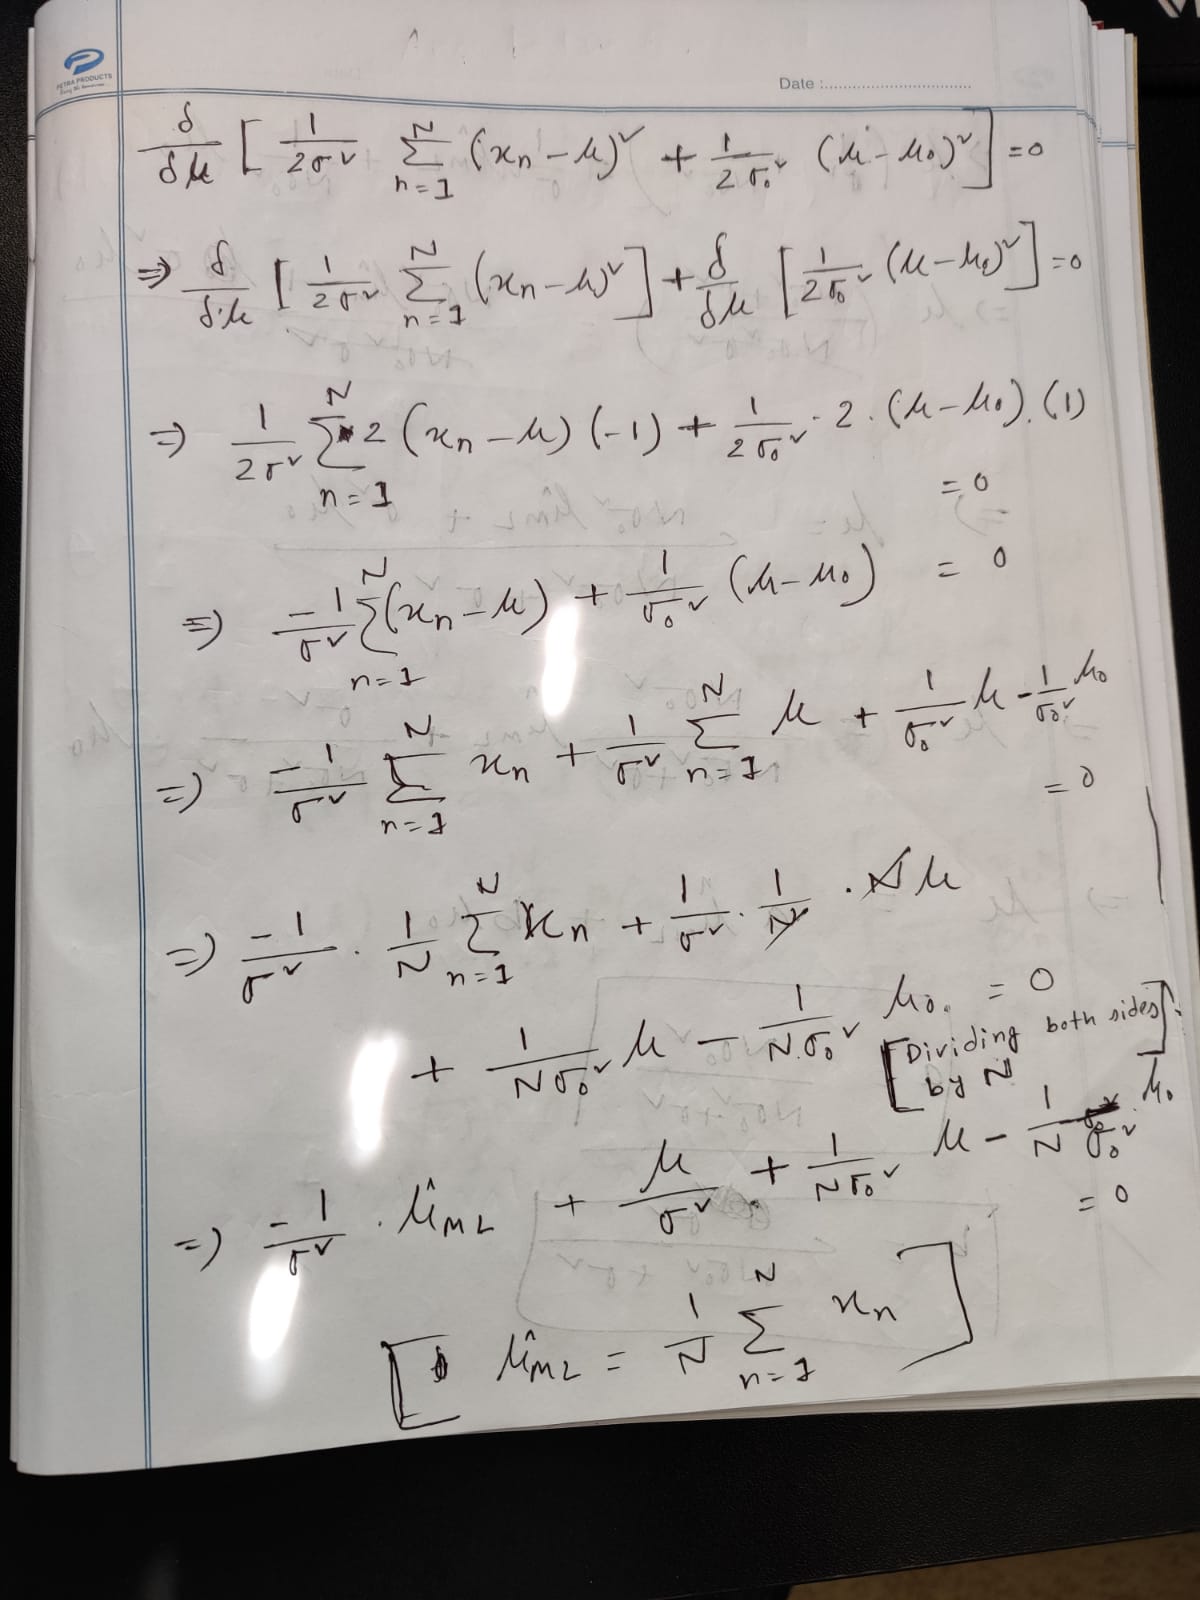 PETRA PRODUCTS
Date :
δ/δμ [ 1/2σ² Σ_{n=1}^{N} (x_n - μ)² + 1/2σ₀² (μ - μ₀)² ] = 0
=> δ/δμ [ 1/2σ² Σ_{n=1}^{N} (x_n - μ)² ] + δ/δμ [ 1/2σ₀² (μ - μ₀)² ] = 0
=> 1/2σ² Σ_{n=1}^{N} 2 (x_n - μ) (-1) + 1/2σ₀² · 2 · (μ - μ₀) · (1)
= 0
=> -1/σ² Σ_{n=1}^{N} (x_n - μ) + 1/σ₀² (μ - μ₀) = 0
=> -1/σ² Σ_{n=1}^{N} x_n + 1/σ² Σ_{n=1}^{N} μ + 1/σ₀² μ - 1/σ₀² μ₀
= 0
=> -1/σ² · 1/N Σ_{n=1}^{N} x_n + 1/σ² · 1/N · N μ
+ 1/Nσ₀² μ - 1/N·σ₀² μ₀. = 0
[Dividing both sides
by N]
=> -1/σ² · μ̂_ML + μ/σ² + 1/Nσ₀² μ - 1/N σ₀² · μ₀
= 0
[ μ̂_ML = 1/N Σ_{n=1}^{N} x_n ]